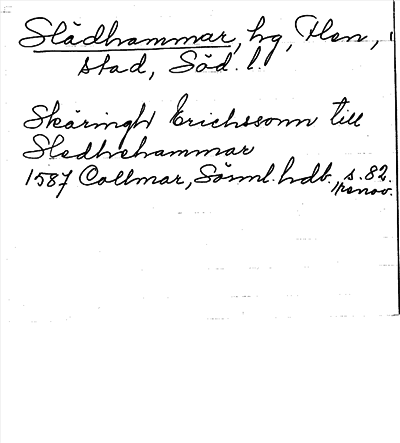 Slädhammar, hg, Flen,
stad, Söd. l.
Skäringh Erichssonn till
Sledhehammar
1587 Collmar, Sörml. hdb. s. 82.
renov.